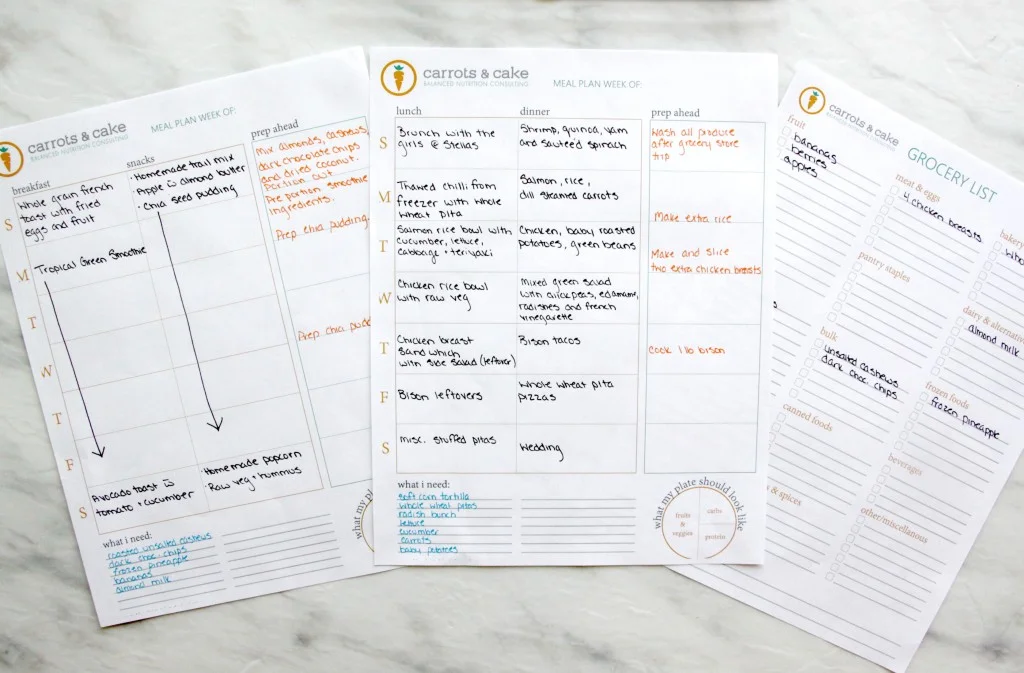 carrots & cake
BALANCED NUTRITION CONSULTING
MEAL PLAN WEEK OF:
breakfast
snacks
prep ahead
S
Whole grain french
toast with fried
eggs and fruit
• Homemade trail mix
• Apple w almond butter
• Chia seed pudding
Mix almonds, cashews,
dark chocolate chips
and dried coconut.
Portion out
Pre portion smoothie
ingredients.
Prep chia pudding.
M
Tropical Green Smoothie
T
W
Prep chia pudd
T
F
S
Avocado toast w
tomato + cucumber
• Homemade popcorn
• Raw veg + hummus
what i need:
roasted unsalted cashews
dark choc. chips
frozen pineapple
bananas
almond milk
what my pl
carrots & cake
BALANCED NUTRITION CONSULTING
MEAL PLAN WEEK OF:
lunch
dinner
prep ahead
S
Brunch with the
girls @ Stellas
Shrimp, quinoa, yam
and sauteé'd spinach
Wash all produce
after grocery store
trip
M
Thawed chilli from
freezer with whole
wheat pita
Salmon, rice,
dill steamed carrots
Make extra rice
T
Salmon rice bowl with
cucumber, lettuce,
cabbage + teriyaki
Chicken, baby roasted
potatoes, green beans
Make and slice
two extra chicken breasts
W
Chicken rice bowl
with raw veg
Mixed green salad
with chickpeas, edamame,
radishes and french
vinegarette
T
Chicken breast
sand which
with side salad (leftover)
Bison tacos
Cook 1 lb bison
F
Bison leftovers
Whole wheat pita
pizzas
S
misc. stuffed pitas
Wedding
what i need:
soft corn tortilla
whole wheat pitas
radish bunch
lettuce
cucumber
carrots
baby potatoes
what my plate should look like
fruits
&
veggies
carbs
protein
carrots & cake
BALANCED NUTRITION CONSULTING
GROCERY LIST
fruit
bananas
berries
apples
meat & eggs
4 chicken breasts
bakery
who
pantry staples
dairy & alternativ
almond milk
bulk
unsalted cashews
dark choc. chips
frozen foods
frozen pineapple
canned foods
beverages
& spices
other/miscellanous